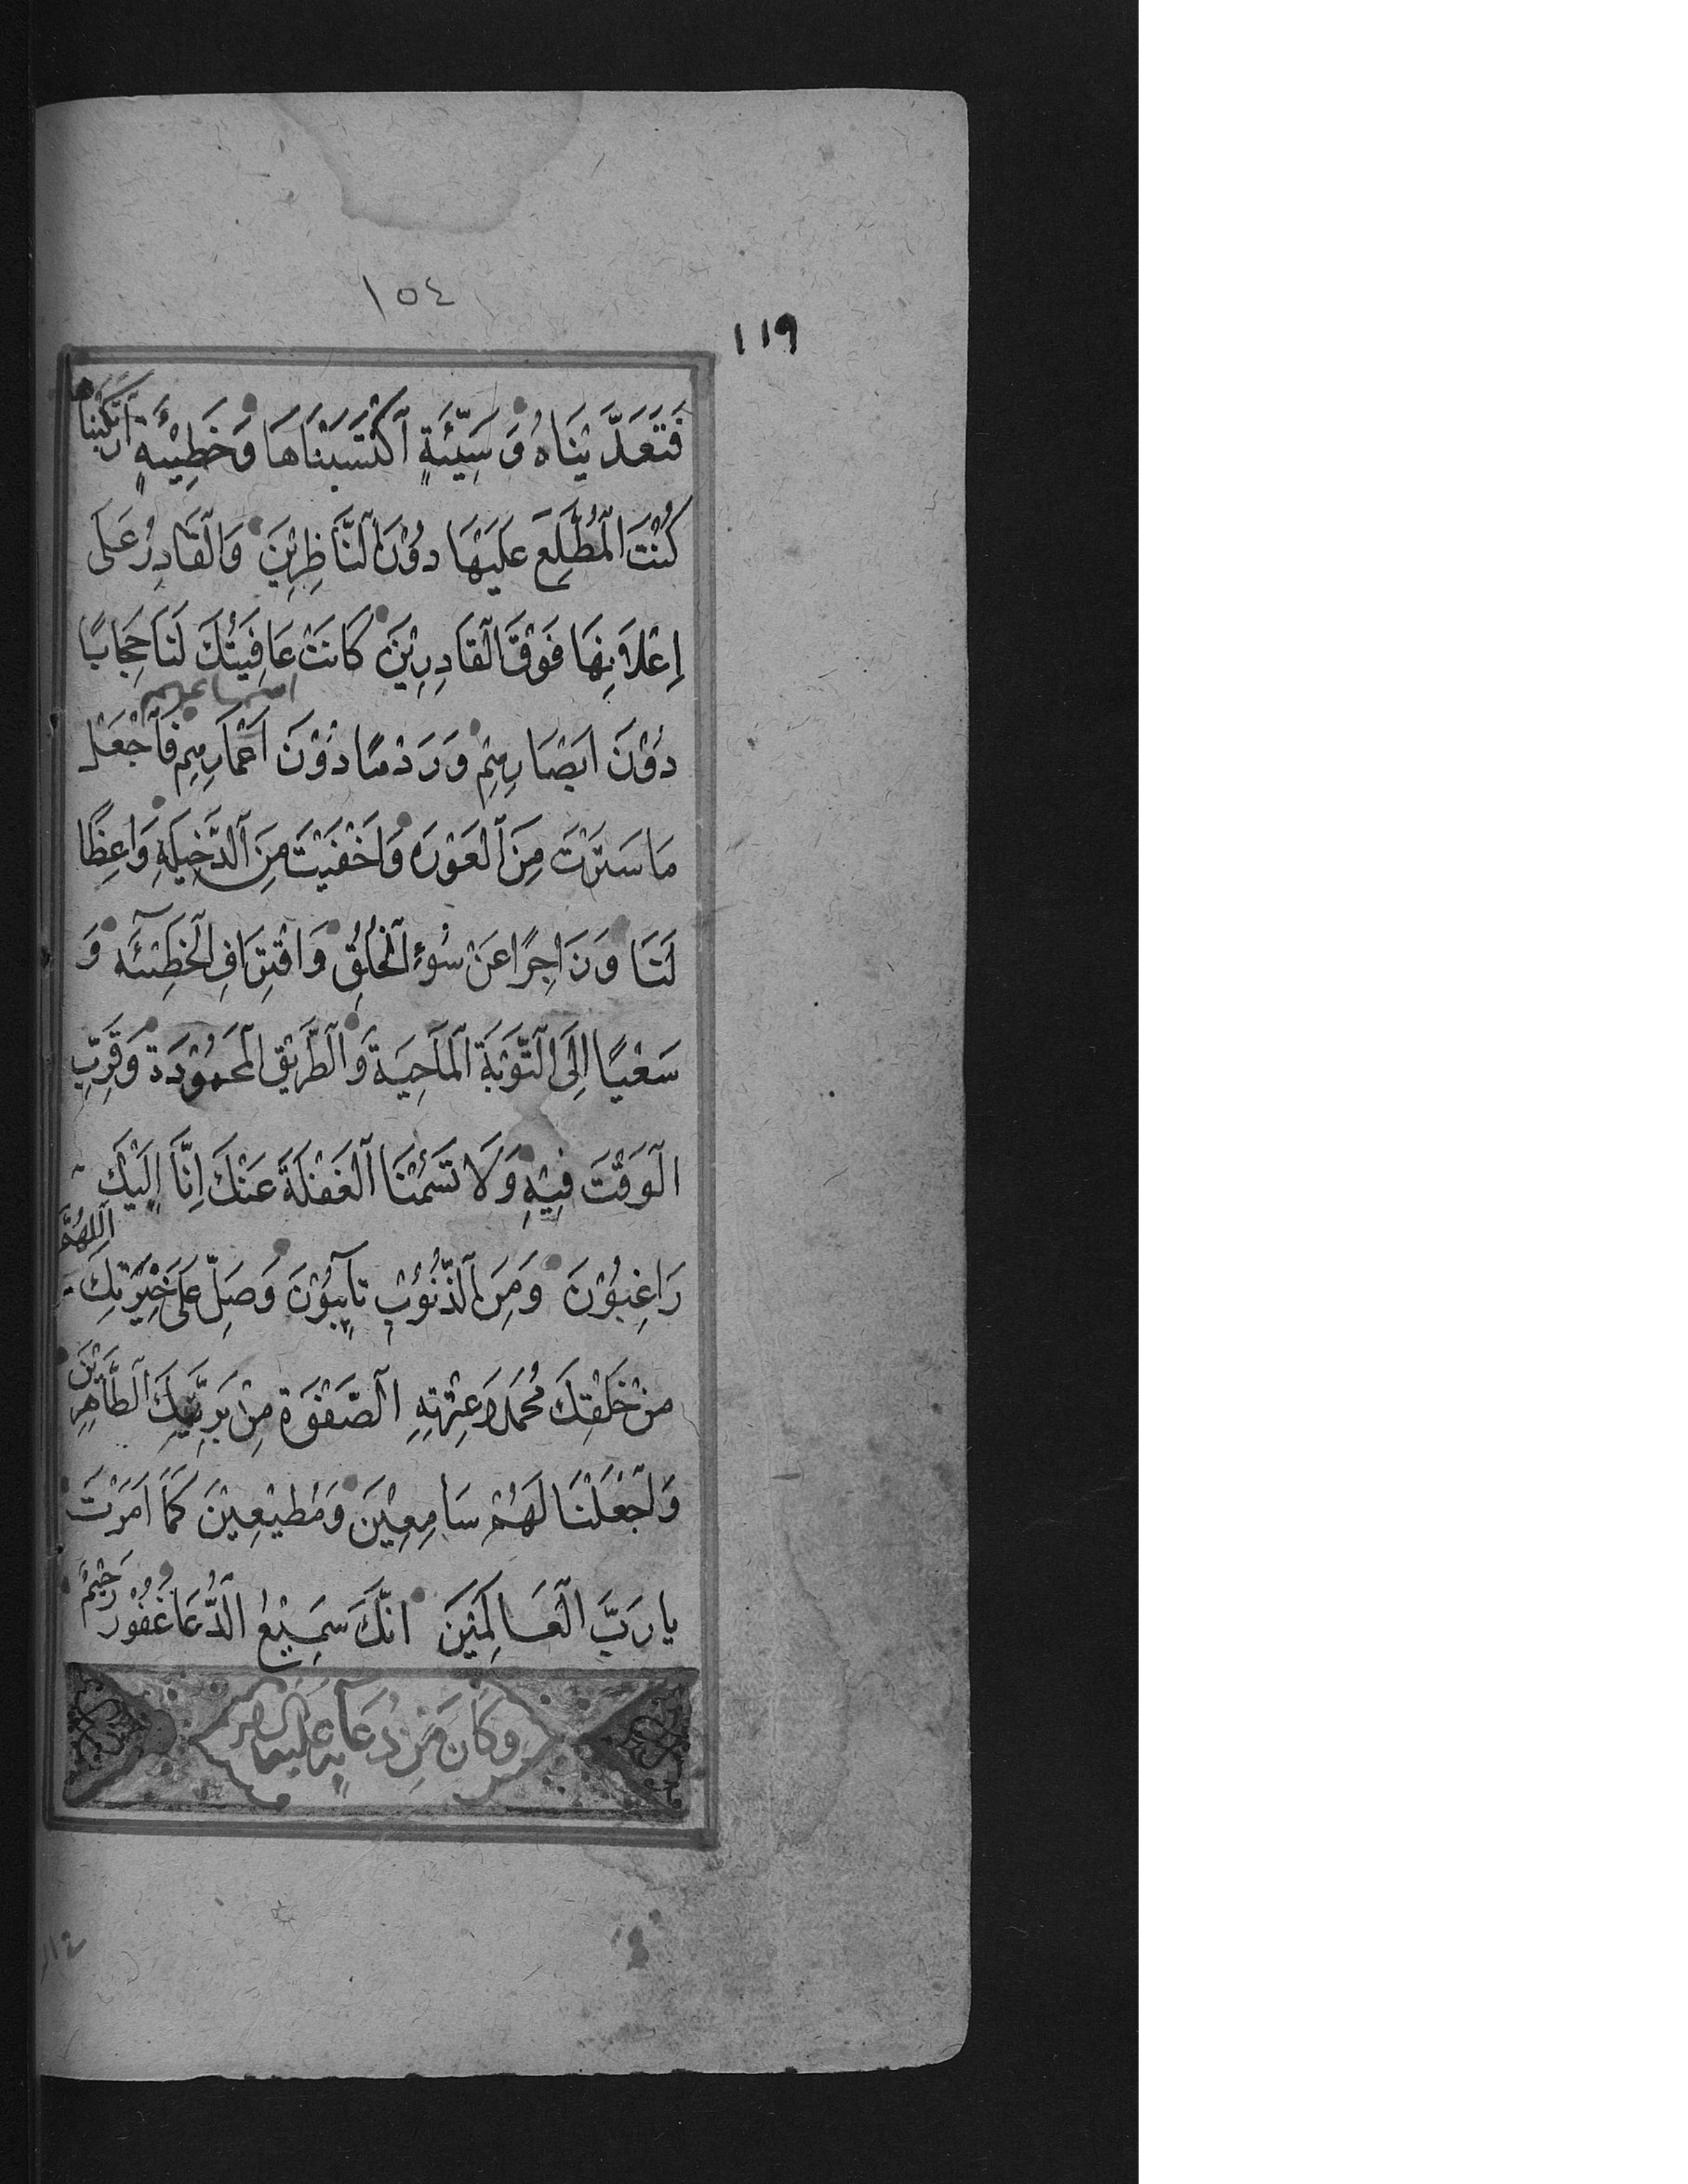 ١٥٤
١١٩
فَتَعَدَّيْنَاهُ وَسَيِّئَةٍ اكْتَسَبْنَاهَا وَخَطِيْئَةٍ ارْتَكَبْنَاهَا
كُنْتَ الْمُطَّلِعَ عَلَيْهَا دُوْنَ النَّاظِرِيْنَ وَالْقَادِرُ عَلَى
اِعْلَانِهَا فَوْقَ الْقَادِرِيْنَ كَانَتْ عَافِيَتُكَ لَنَا حِجَابًا
دُوْنَ اَبْصَارِهِمْ وَرَدْمًا دُوْنَ اَسْمَاعِهِمْ فَاجْعَلْ
مَا سَتَرْتَ مِنَ الْعَوْرَةِ وَاَخْفَيْتَ مِنَ الدَّخِيلَةِ وَاعِظًا
لَنَا وَزَاجِرًا عَنْ سُوْءِ الْخُلُقِ وَاقْتِرَافِ الْخَطِيْئَةِ وَ
سَعْيًا اِلَى التَّوْبَةِ الْمَاحِيَةِ وَالطَّرِيْقِ الْمَحْمُوْدَةِ وَقَرِّبِ
الْوَقْتَ فِيْهِ وَلَا تَسُمْنَا الْغَفْلَةَ عَنْكَ اِنَّا اِلَيْكَ
رَاغِبُوْنَ وَمِنَ الذُّنُوْبِ تَائِبُوْنَ وَصَلِّ عَلَى خِيَرَتِكَ اللّٰهُمَّ
مِنْ خَلْقِكَ مُحَمَّدٍ وَعِتْرَتِهِ الصَّفْوَةِ مِنْ بَرِيَّتِكَ الطَّاهِرِيْنَ
وَاجْعَلْنَا لَهُمْ سَامِعِيْنَ وَمُطِيْعِيْنَ كَمَا اَمَرْتَ
يَا رَبَّ الْعَالَمِيْنَ اِنَّكَ سَمِيْعُ الدُّعَا غَفُوْرٌ رَحِيْمٌ
وَكَانَ مِنْ دُعَائِهِ عَلَيْهِ السَّلَامُ